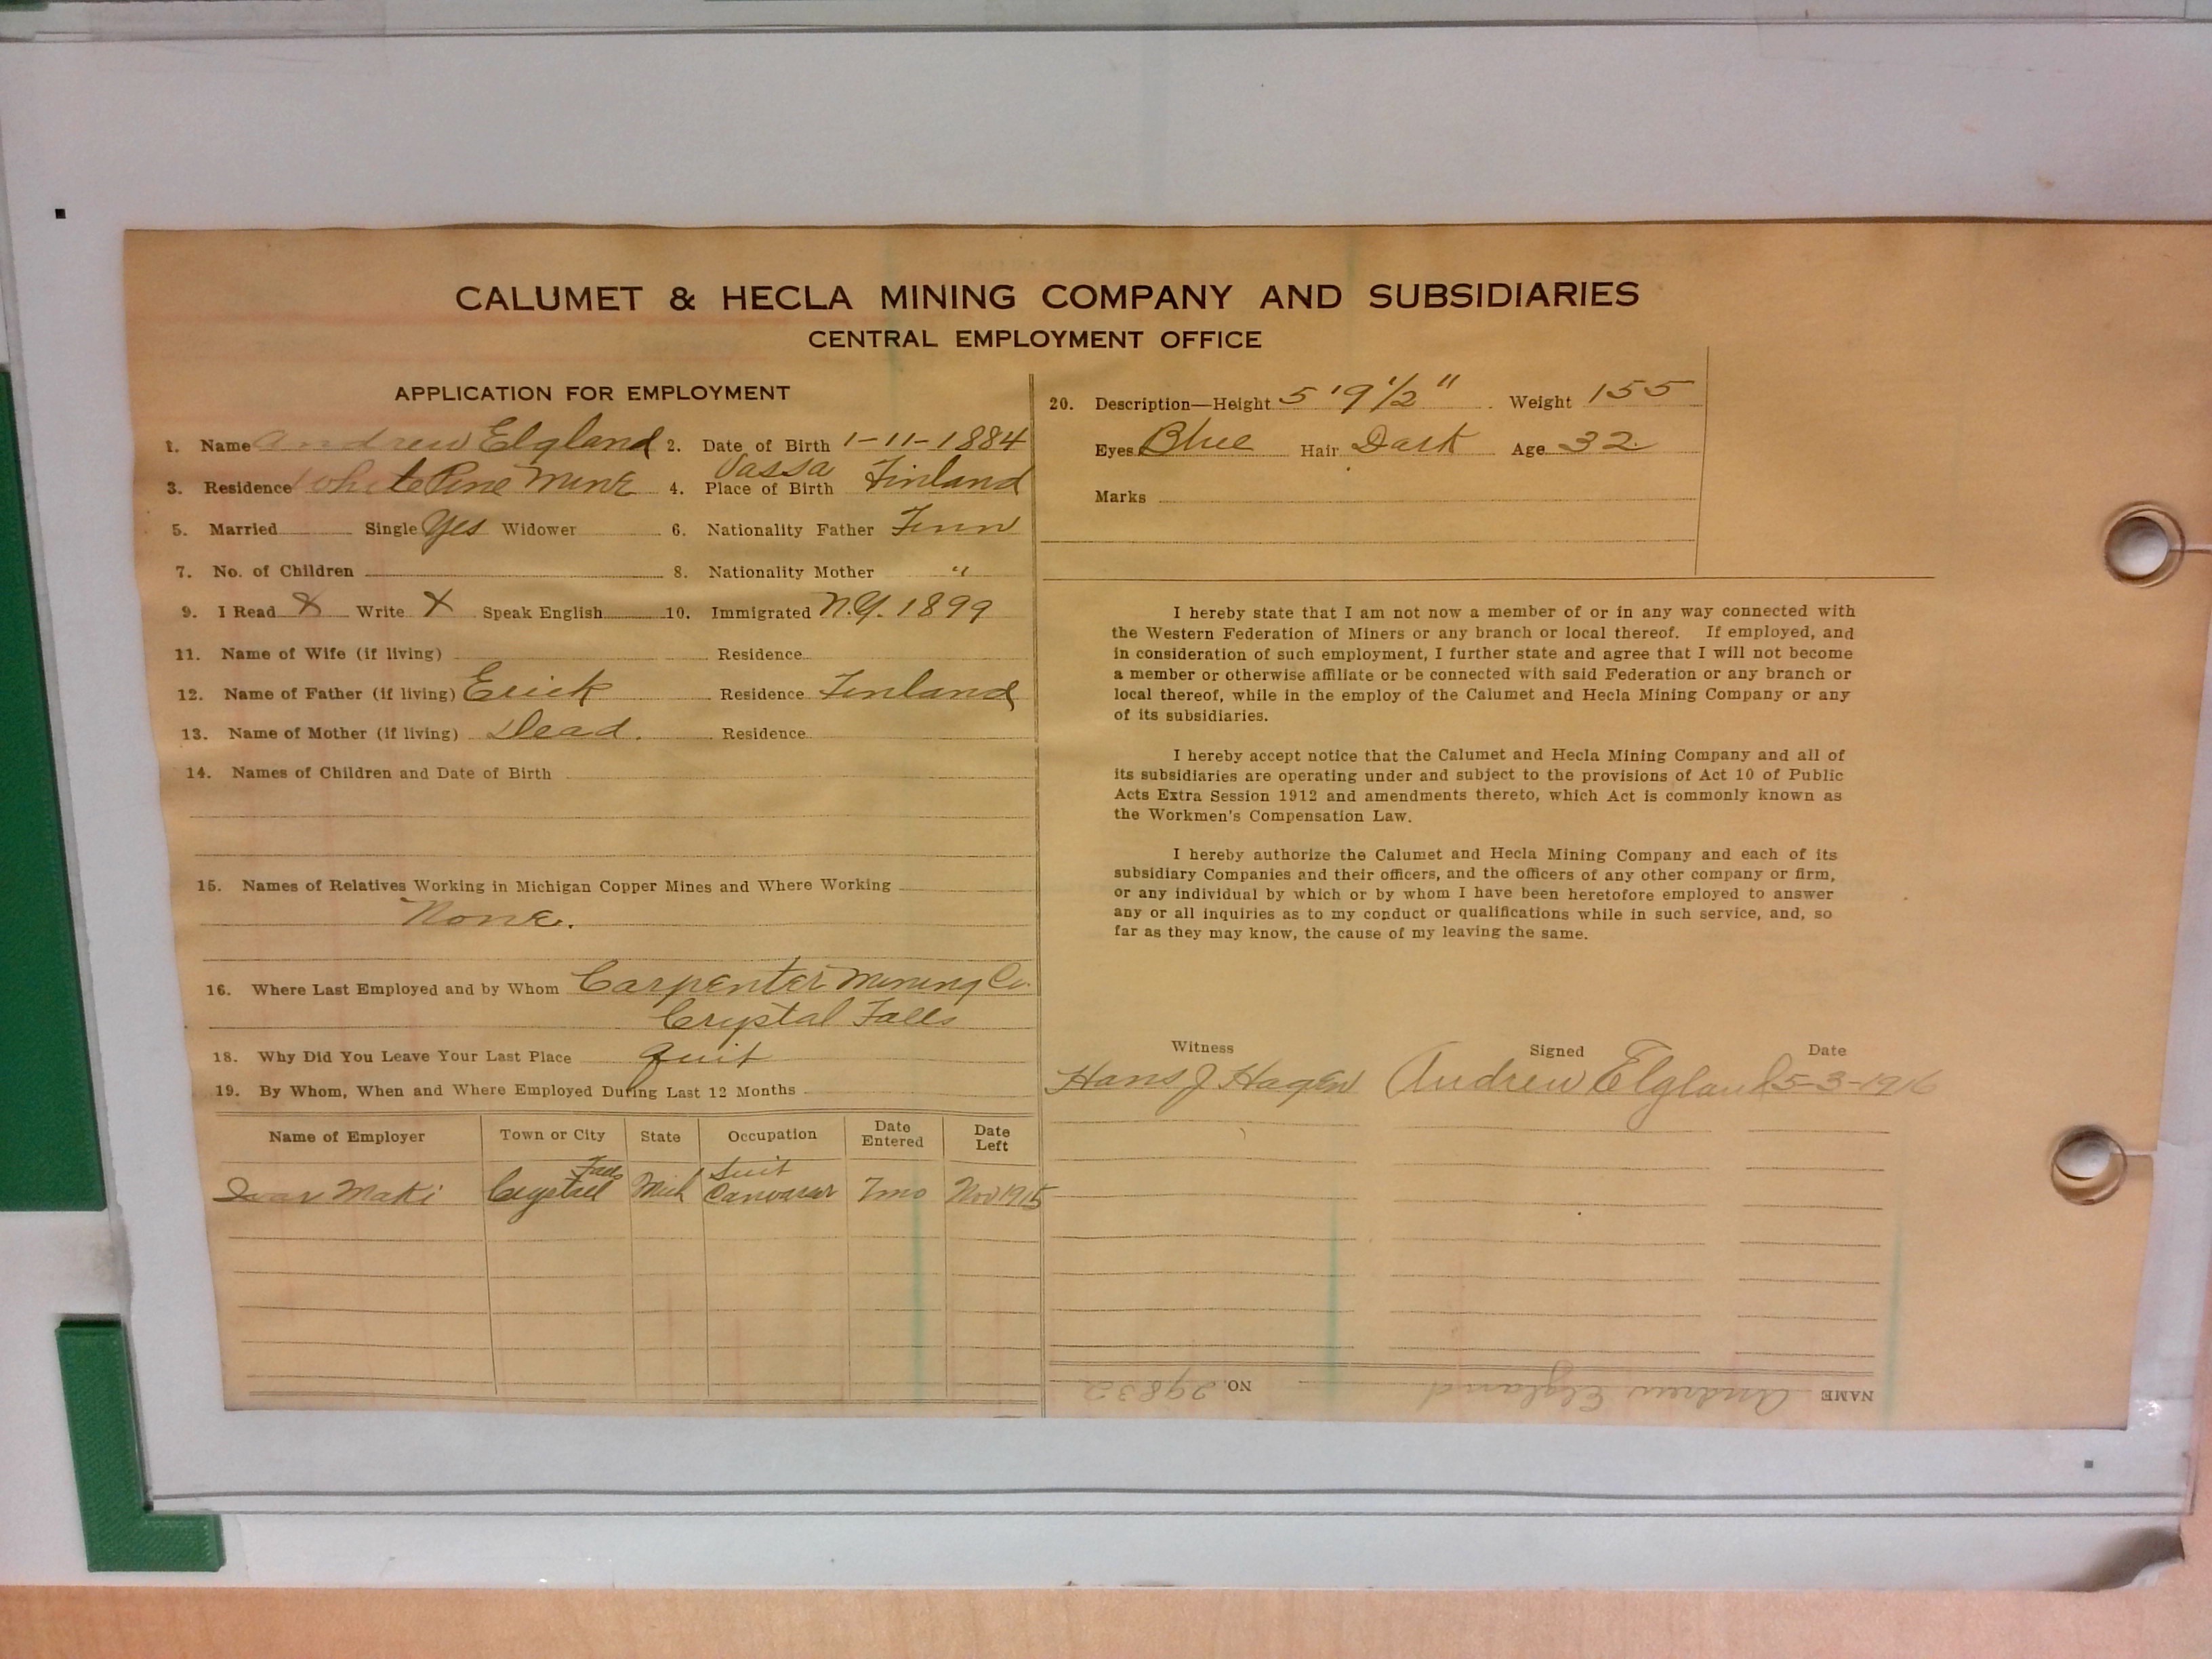 CALUMET & HECLA MINING COMPANY AND SUBSIDIARIES
CENTRAL EMPLOYMENT OFFICE
APPLICATION FOR EMPLOYMENT
1. Name Andrew Elgland 2. Date of Birth 1-11-1884
3. Residence White Pine Mine 4. Place of Birth Vassa Finland
5. Married Single Yes Widower 6. Nationality Father Finn
7. No. of Children 8. Nationality Mother "
9. I Read X Write X Speak English 10. Immigrated N.Y. 1899
11. Name of Wife (if living) Residence
12. Name of Father (if living) Erick Residence Finland
13. Name of Mother (if living) Dead. Residence
14. Names of Children and Date of Birth
15. Names of Relatives Working in Michigan Copper Mines and Where Working
None.
16. Where Last Employed and by Whom Carpenter Mining Co.
Crystal Falls
18. Why Did You Leave Your Last Place Quit
19. By Whom, When and Where Employed During Last 12 Months
Name of Employer Town or City State Occupation Date Entered Date Left
Ivar Maki Crystal Falls Mich Suit Canvasser 7mo Nov 1915
20. Description—Height 5'9 1/2" Weight 155
Eyes Blue Hair Dark Age 32
Marks
I hereby state that I am not now a member of or in any way connected with
the Western Federation of Miners or any branch or local thereof. If employed, and
in consideration of such employment, I further state and agree that I will not become
a member or otherwise affiliate or be connected with said Federation or any branch or
local thereof, while in the employ of the Calumet and Hecla Mining Company or any
of its subsidiaries.
I hereby accept notice that the Calumet and Hecla Mining Company and all of
its subsidiaries are operating under and subject to the provisions of Act 10 of Public
Acts Extra Session 1912 and amendments thereto, which Act is commonly known as
the Workmen's Compensation Law.
I hereby authorize the Calumet and Hecla Mining Company and each of its
subsidiary Companies and their officers, and the officers of any other company or firm,
or any individual by which or by whom I have been heretofore employed to answer
any or all inquiries as to my conduct or qualifications while in such service, and, so
far as they may know, the cause of my leaving the same.
Witness Signed Date
Hans J Hagen Andrew Elgland 5-3-1916
NAME Andrew Elgland NO. 29832